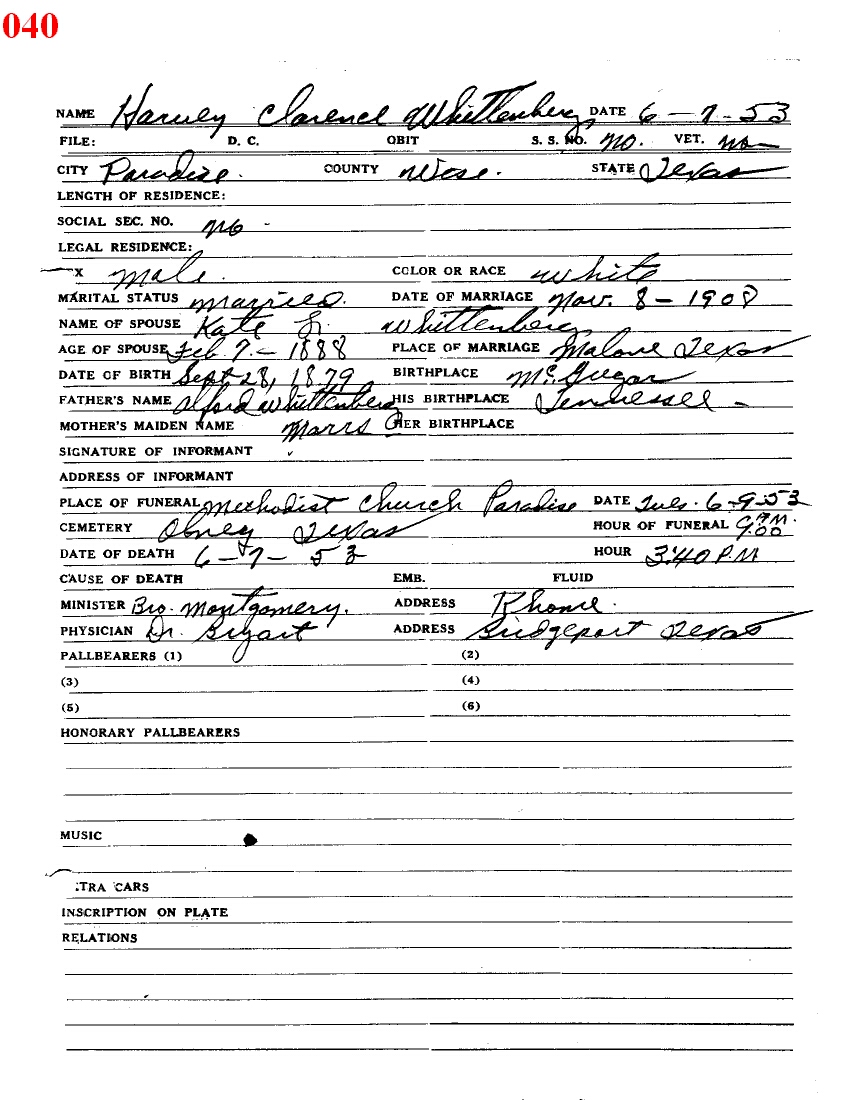 040
NAME Harvey Clarence Whittenberg DATE 6-7-53
FILE: D. C. OBIT S. S. NO. No. VET. no
CITY Paradise. COUNTY Wise. STATE Texas
LENGTH OF RESIDENCE:
SOCIAL SEC. NO. No -
LEGAL RESIDENCE:
X Male. COLOR OR RACE White
MARITAL STATUS Married. DATE OF MARRIAGE Nov. 8-1908
NAME OF SPOUSE Kate Whittenberg
AGE OF SPOUSE Feb 7.-1888 PLACE OF MARRIAGE Malone Texas
DATE OF BIRTH Sept 28, 1879 BIRTHPLACE McGregor
FATHER'S NAME Alford Whittenberg HIS BIRTHPLACE Tennessee -
MOTHER'S MAIDEN NAME Marrs HER BIRTHPLACE
SIGNATURE OF INFORMANT
ADDRESS OF INFORMANT
PLACE OF FUNERAL Methodist Church Paradise DATE Tues. 6-9-53
CEMETERY Olney Texas HOUR OF FUNERAL 9:00 A.M.
DATE OF DEATH 6-7-53 HOUR 3:40 P.M
CAUSE OF DEATH EMB. FLUID
MINISTER Bro. Montgomery. ADDRESS Rhome.
PHYSICIAN Dr. Bryart ADDRESS Bridgeport Texas
PALLBEARERS (1) (2)
(3) (4)
(5) (6)
HONORARY PALLBEARERS
MUSIC
:TRA CARS
INSCRIPTION ON PLATE
RELATIONS